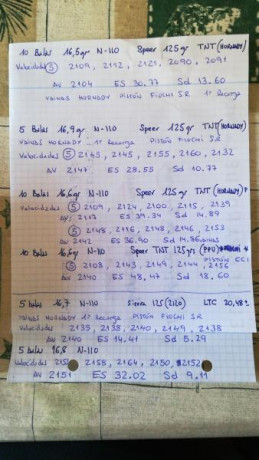 10 Balas 16,5gr N-110 Speer 125gr TNT (HORNADY)
Velocidades (5) 2109, 2112, 2121, 2090, 2091
AV 2104 ES 30.77 Sd 13.60
VAINAS HORNADY PISTON FIOCHI SR 1ª Recarga
5 Balas 16,9gr N-110 Speer 125gr TNT (HORNADY)
VAINAS HORNADY 1ª RECARGA PISTÓN FIOCHI SR
Velocidades (5) 2145, 2145, 2155, 2160, 2132
AV 2147 ES 28.55 Sd 10.77
10 Balas 16,6gr N-110 Speer 125gr TNT (HORNADY)
Velocidades (5) 2109, 2124, 2100, 2115, 2139
AV: ES 39.34 Sd 14.89
(5) 2148, 2116, 2148, 2146, 2153
AV 2142 ES 36.90
10 Balas 16,6gr N-110 Speer 125gr TNT (PPU)
PISTÓN CCI
(5) 2108, 2143, 2149, 2144, 2156
AV 2140 ES 48,47 Sd 18,60
5 balas 16,7 N-110 Sierra 125 (2120) LTC 20,48
VAINAS HORNADY 1ª Recarga PISTÓN FIOCHI SR
Velocidades 2135, 2138, 2140, 2149, 2138
AV 2140 ES 14.41 Sd 5.29
5 balas 16,8 N-110
Velocidades 2158, 2164, 2150, 2152
AV 2151 ES 32.02 Sd 9.11